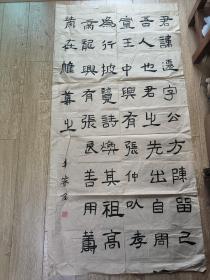 君諱遷字公方陳留己
吾人也君之先出自周
宣王中興有張仲以孝
為行披覽詩煥其祖高
帝龍興有張良善用籌
策在帷幕之